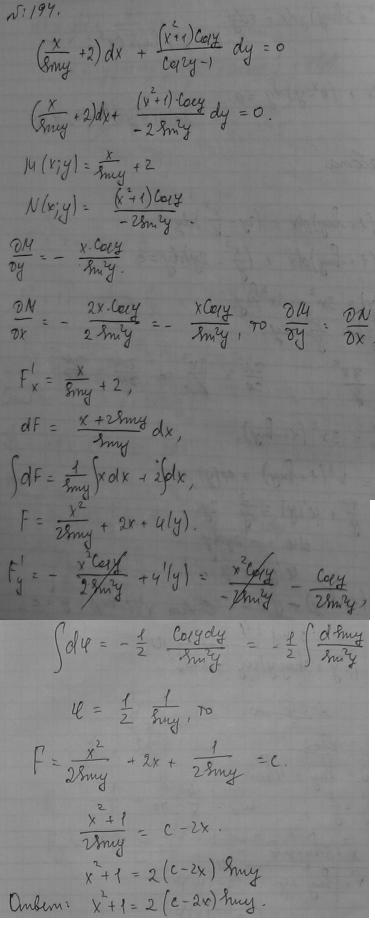 №: 194.
(x/siny + 2) dx + (x²+1)Cosy/(Cos2y-1) dy = 0
(x/siny + 2) dx + (x²+1)·Cosy/(-2Sin²y) dy = 0.
M(x;y) = x/siny + 2
N(x;y) = (x²+1)Cosy/(-2Sin²y).
∂M/∂y = - x·Cosy/Sin²y.
∂N/∂x = - 2x·Cosy/2Sin²y = - xCosy/Sin²y, то ∂M/∂y = ∂N/∂x.
F'x = x/Siny + 2,
dF = (x+2Siny)/Siny dx,
∫dF = 1/Siny ∫xdx + 2∫dx,
F = x²/2Siny + 2x + φ(y).
F'y = - x²Cosy/2Sin²y + φ'(y) = x²Cosy/-2Sin²y - Cosy/2Sin²y,
∫dφ = - 1/2 Cosydy/Sin²y = - 1/2 ∫ dSiny/Sin²y
φ = 1/2 1/Siny, то
F = x²/2Siny + 2x + 1/2Siny = c.
(x²+1)/2Siny = c - 2x.
x²+1 = 2(c-2x) Siny
Ответ: x²+1 = 2(c-2x) Siny.